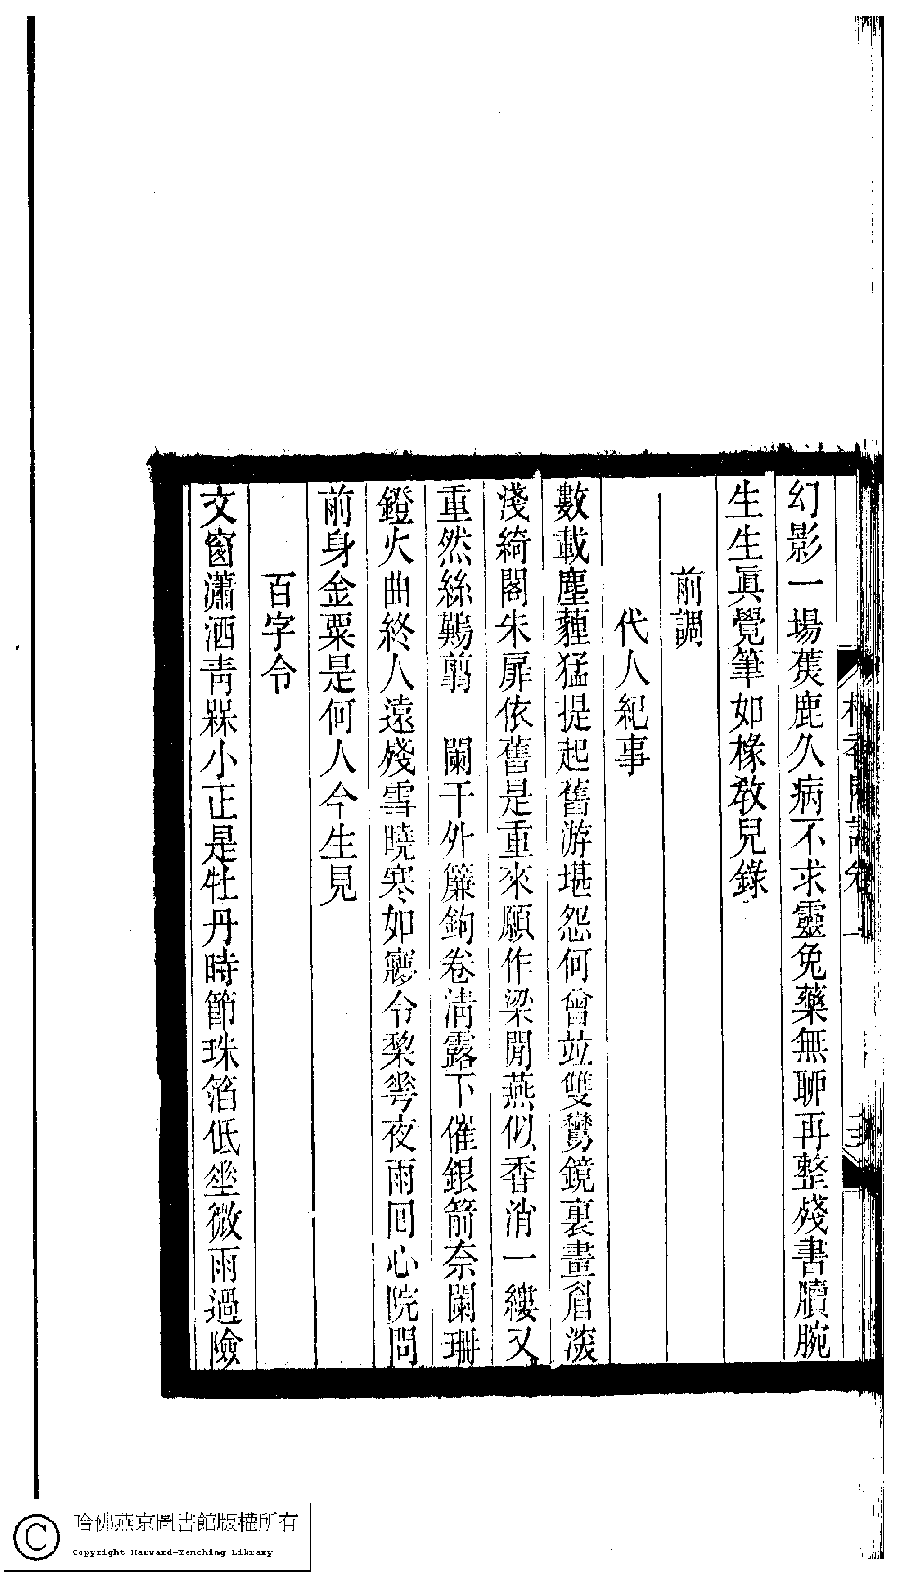 幻影一場蕉鹿久病不求靈兔藥無聊再整殘書牘腕
生生眞覺筆如椽教兒錄
前調
代人紀事
數載塵薶猛提起舊游堪怨何曾竝雙鸞鏡裏畫眉淡
淺綺閣朱扉依舊是重來願作梁閒燕似香消一縷又
重然絲鷄翦　闌干外簾鉤卷清露下催銀箭奈闌珊
鐙火曲終人遠殘雪曉寒如寢令棃雩夜雨回心院問
前身金粟是何人今生見
百字令
文窗瀟洒靑槑小正是牡丹時節珠箔低坐微雨過險
香閣詞卷二
哈佛燕京圖書館版權所有
Copyright Harvard-Yenching Library